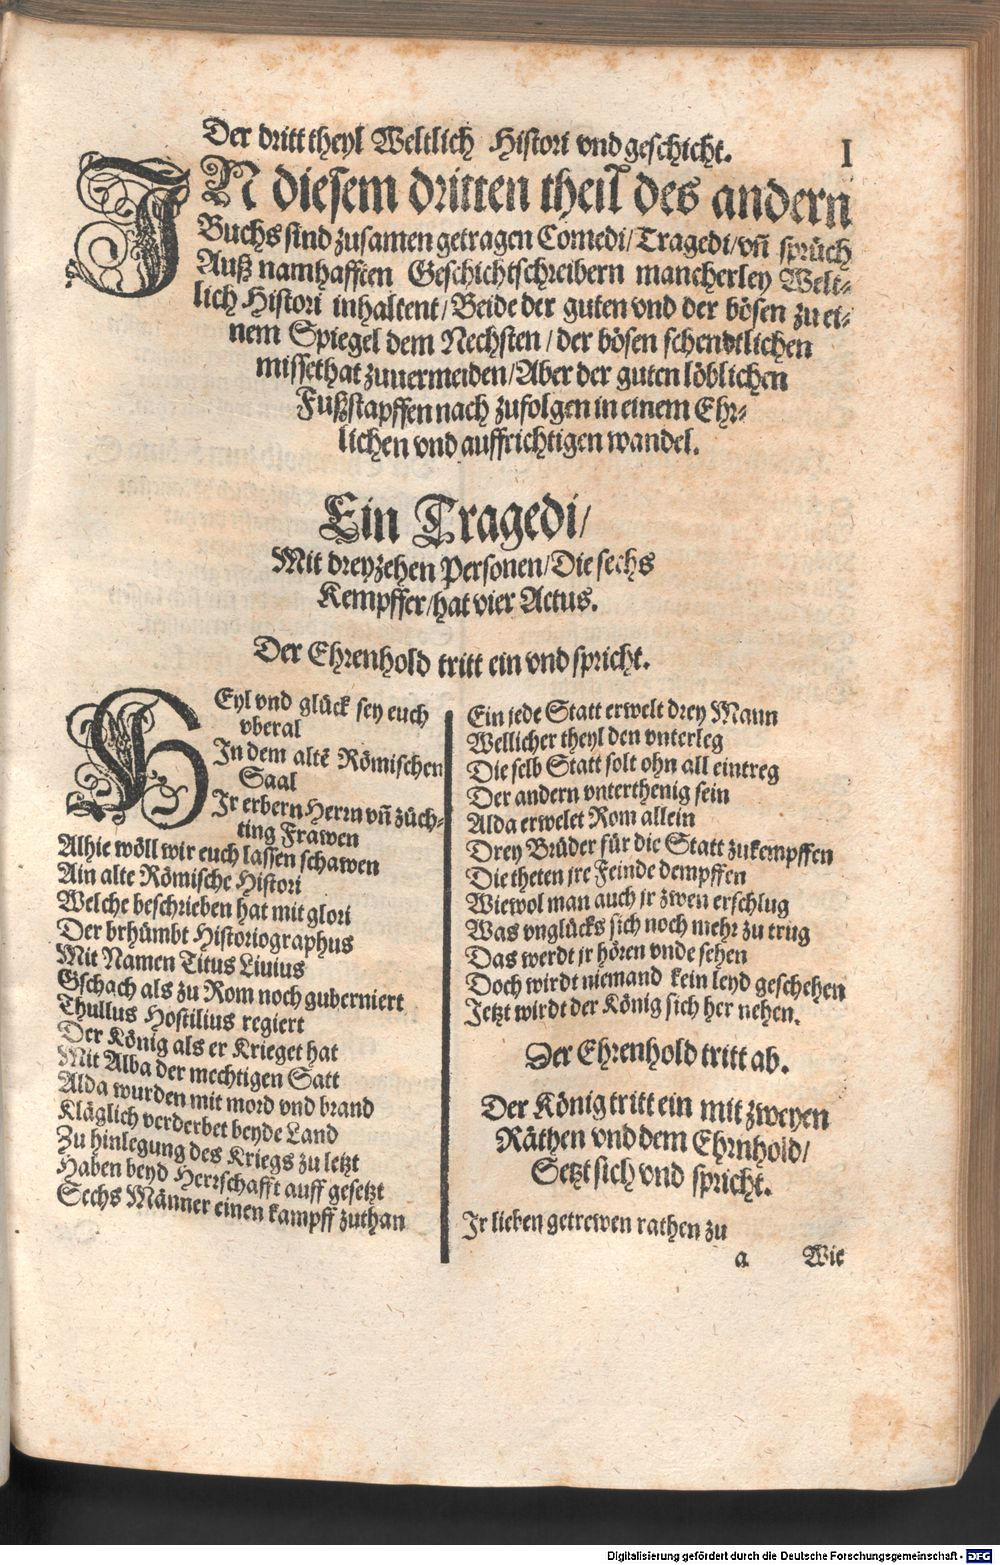 Der dritt theyl Weltlich Histori vnd geschicht. I
IN diesem dritten theil des andern
Buchs sind zusamen getragen Comedi/Tragedi/vñ sprüch
Auß namhafften Geschichtschreibern mancherley Welt⸗
lich Histori inhaltent/Beide der guten vnd der bösen zu ei⸗
nem Spiegel dem Nechsten/der bösen schendtlichen
missethat zuuermeiden/Aber der guten löblichen
Fußstapffen nach zufolgen in einem Ehr⸗
lichen vnd auffrichtigen wandel.
Ein Tragedi/
Mit dreyzehen Personen/Die sechs
Kempffer/hat vier Actus.
Der Ehrenhold tritt ein vnd spricht.
HEyl vnd glück sey euch
vberal
In dem altẽ Römischen
Saal
Ir erbern Herrn vñ züch⸗
ting Frawen
Alhie wöll wir euch lassen schawen
Ain alte Römische Histori
Welche beschrieben hat mit glori
Der brhümbt Historiographus
Mit Namen Titus Liuius
Gschach als zu Rom noch guberniert
Thullus Hostilius regiert
Der König als er Krieget hat
Mit Alba der mechtigen Satt
Alda wurden mit mord vnd brand
Kläglich verderbet beyde Land
Zu hinlegung des Kriegs zu letzt
Haben beyd Herrschafft auff gesetzt
Sechs Männer einen kampff zuthan
Ein jede Statt erwelt drey Mann
Wellicher theyl den vnterleg
Die selb Statt solt ohn all eintreg
Der andern vnterthenig sein
Alda erwelet Rom allein
Drey Brüder für die Statt zukempffen
Die theten jre Feinde dempffen
Wiewol man auch jr zwen erschlug
Was vnglücks sich noch mehr zu trug
Das werdt jr hören vnde sehen
Doch wirdt niemand kein leyd geschehen
Jetzt wirdt der König sich her nehen.
Der Ehrenhold tritt ab.
Der König tritt ein mit zweyen
Räthen vnd dem Ehrnhold/
Setzt sich vnd spricht.
Ir lieben getrewen rathen zu
a Wie
Digitalisierung gefördert durch die Deutsche Forschungsgemeinschaft - DFG